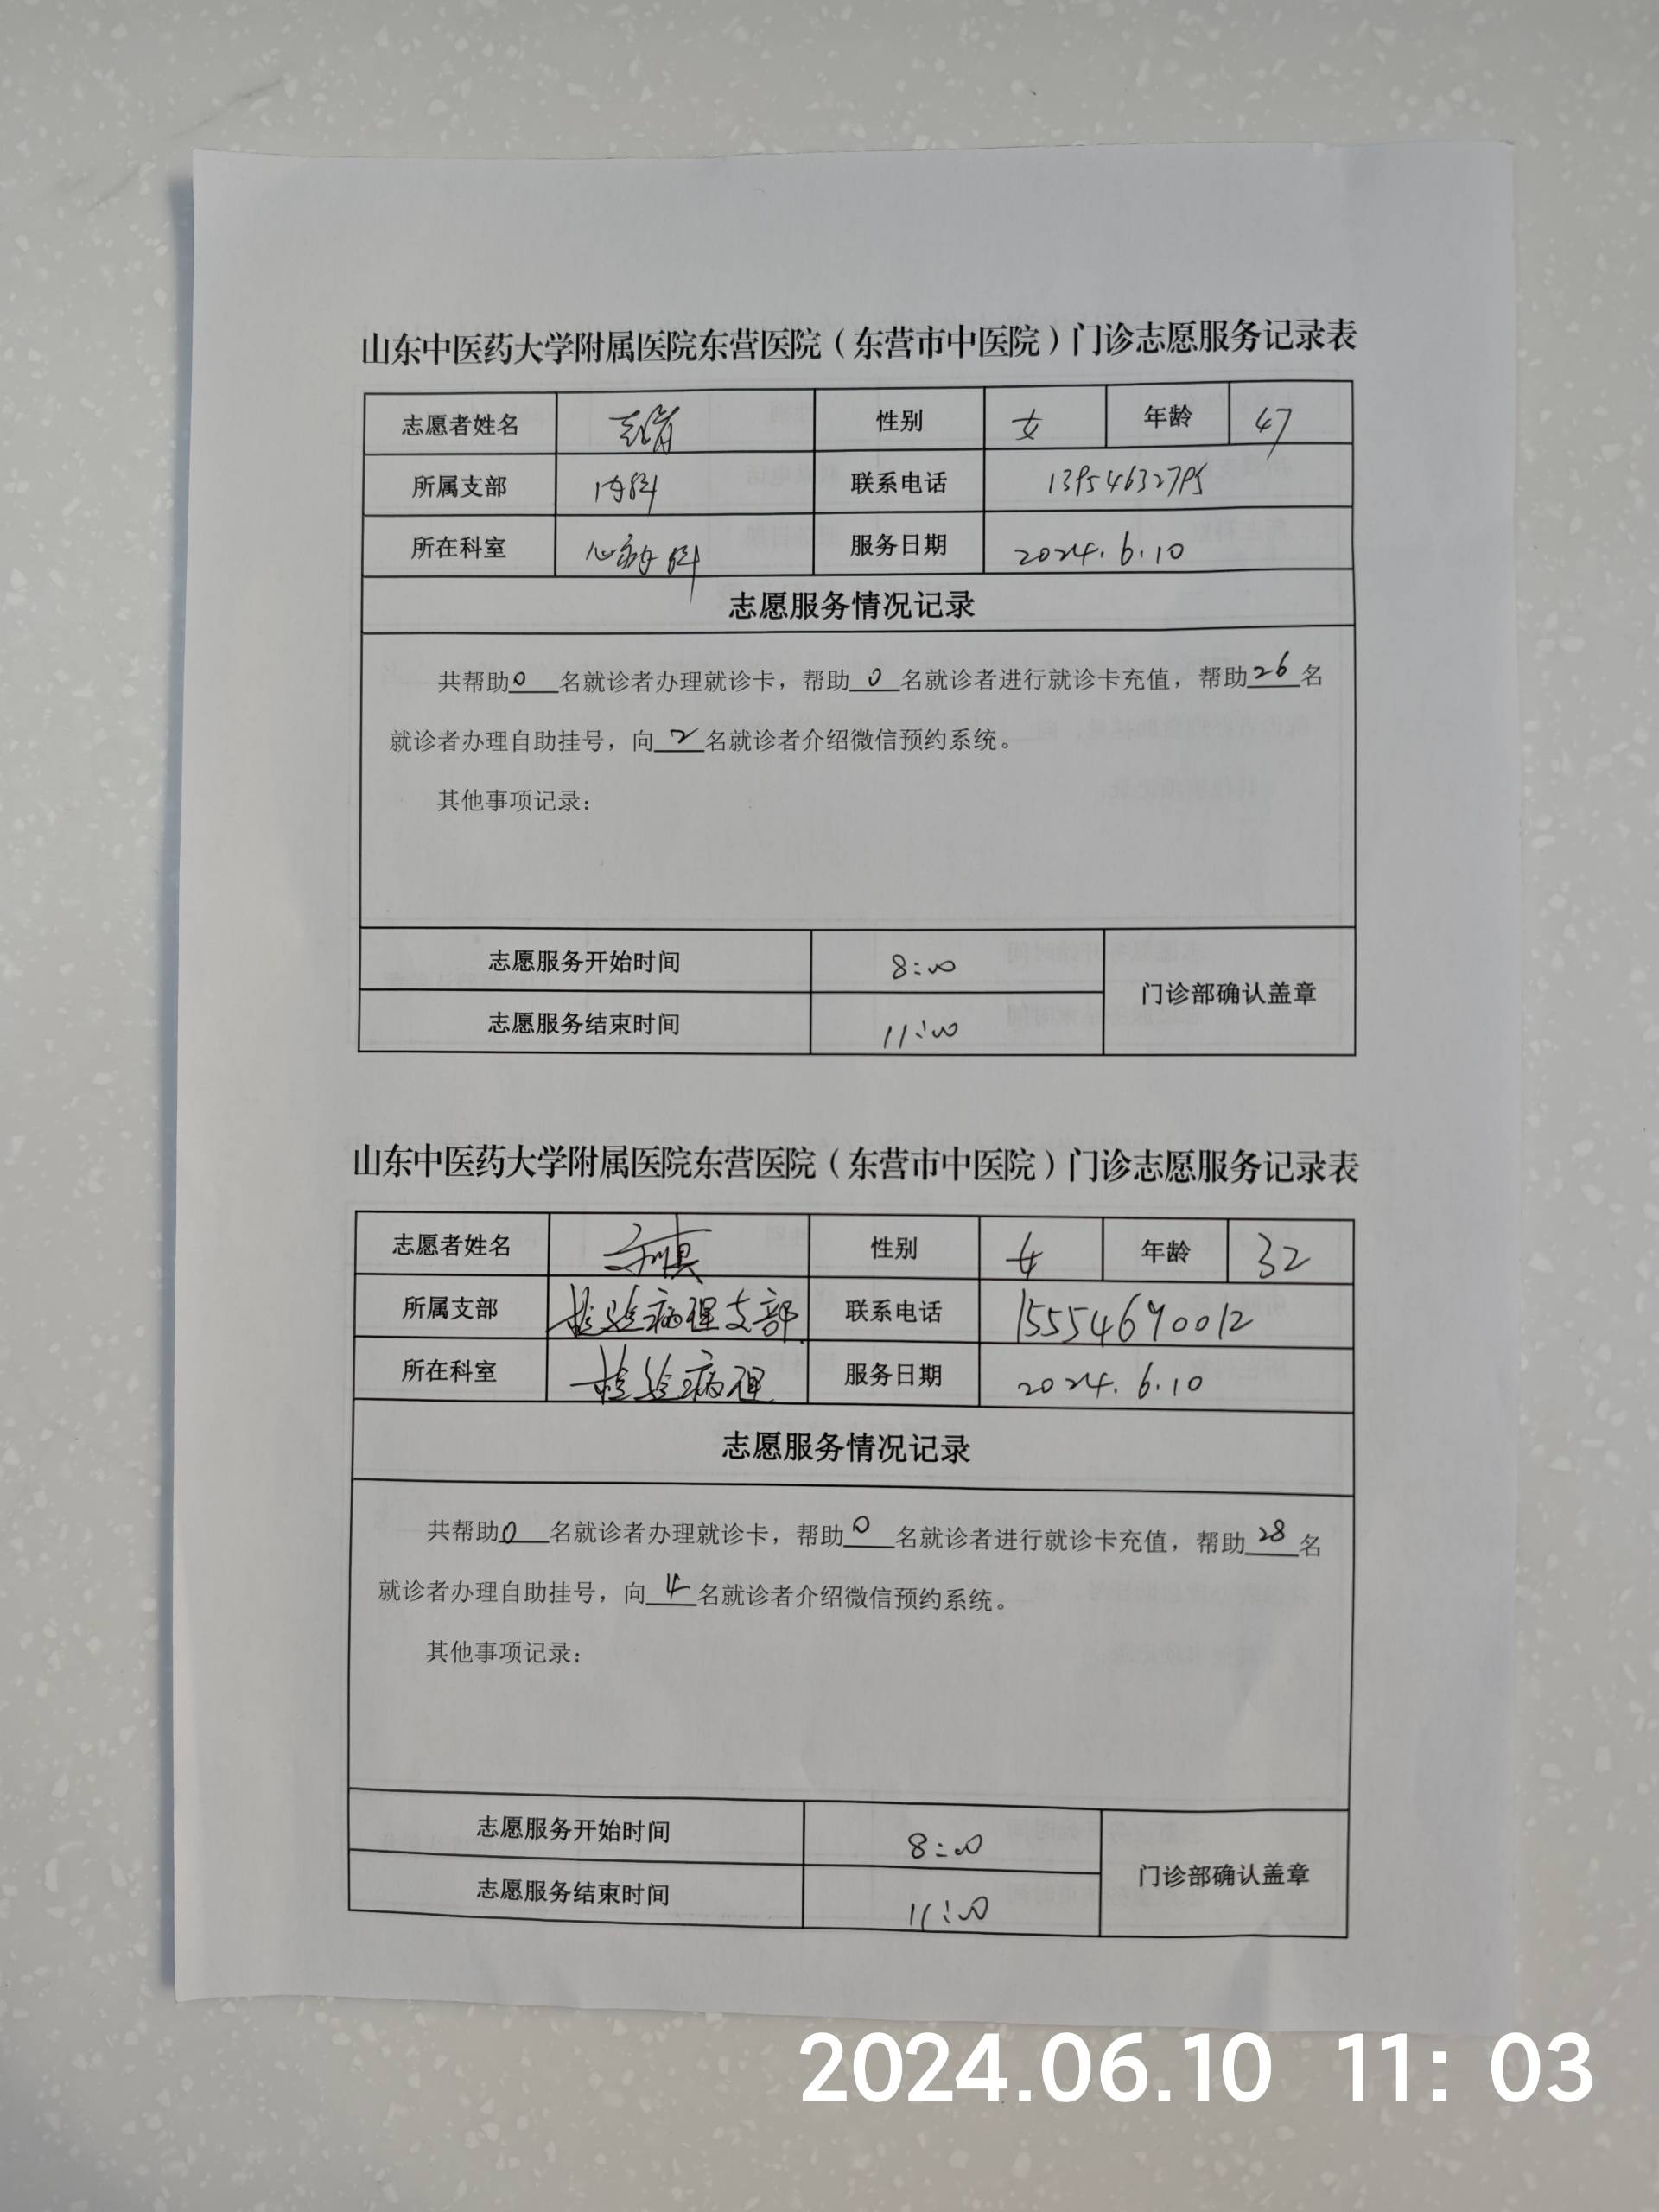 山东中医药大学附属医院东营医院（东营市中医院）门诊志愿服务记录表
志愿者姓名 性别 女 年龄 47
所属支部 内科 联系电话 13954632795
所在科室 心病科 服务日期 2024.6.10
志愿服务情况记录
共帮助0名就诊者办理就诊卡，帮助0名就诊者进行就诊卡充值，帮助26名
就诊者办理自助挂号，向2名就诊者介绍微信预约系统。
其他事项记录：
志愿服务开始时间 8:00
门诊部确认盖章
志愿服务结束时间 11:00
山东中医药大学附属医院东营医院（东营市中医院）门诊志愿服务记录表
志愿者姓名 性别 女 年龄 32
所属支部 检验病理支部 联系电话 15554690012
所在科室 检验病理 服务日期 2024.6.10
志愿服务情况记录
共帮助0名就诊者办理就诊卡，帮助0名就诊者进行就诊卡充值，帮助28名
就诊者办理自助挂号，向4名就诊者介绍微信预约系统。
其他事项记录：
志愿服务开始时间 8:00
门诊部确认盖章
志愿服务结束时间 11:00
2024.06.10 11:03